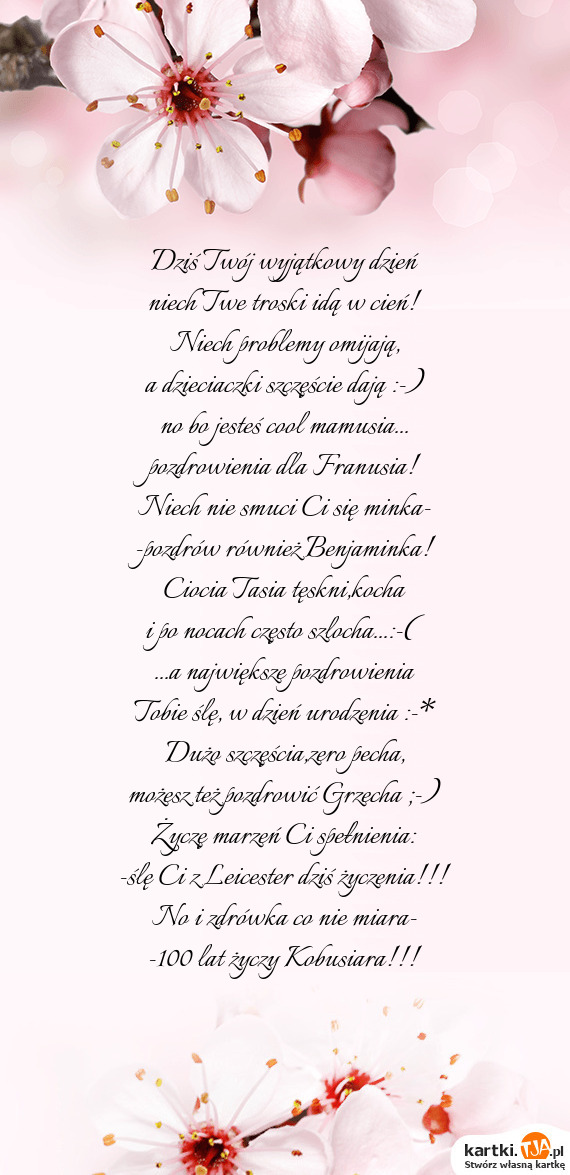 Dziś Twój wyjątkowy dzień
niech Twe troski idą w cień!
Niech problemy omijają,
a dzieciaczki szczęście dają :-)
no bo jesteś cool mamusia...
pozdrowienia dla Franusia!
Niech nie smuci Ci się minka-
-pozdrów również Benjaminka!
Ciocia Tasia tęskni,kocha
i po nocach często szlocha...:-(
...a największe pozdrowienia
Tobie ślę, w dzień urodzenia :-*
Dużo szczęścia,zero pecha,
możesz też pozdrowić Grzecha ;-)
Życzę marzeń Ci spełnienia:
-ślę Ci z Leicester dziś życzenia!!!
No i zdrówka co nie miara-
-100 lat życzy Kobusiara!!!
kartki.TJA.pl
Stwórz własną kartkę